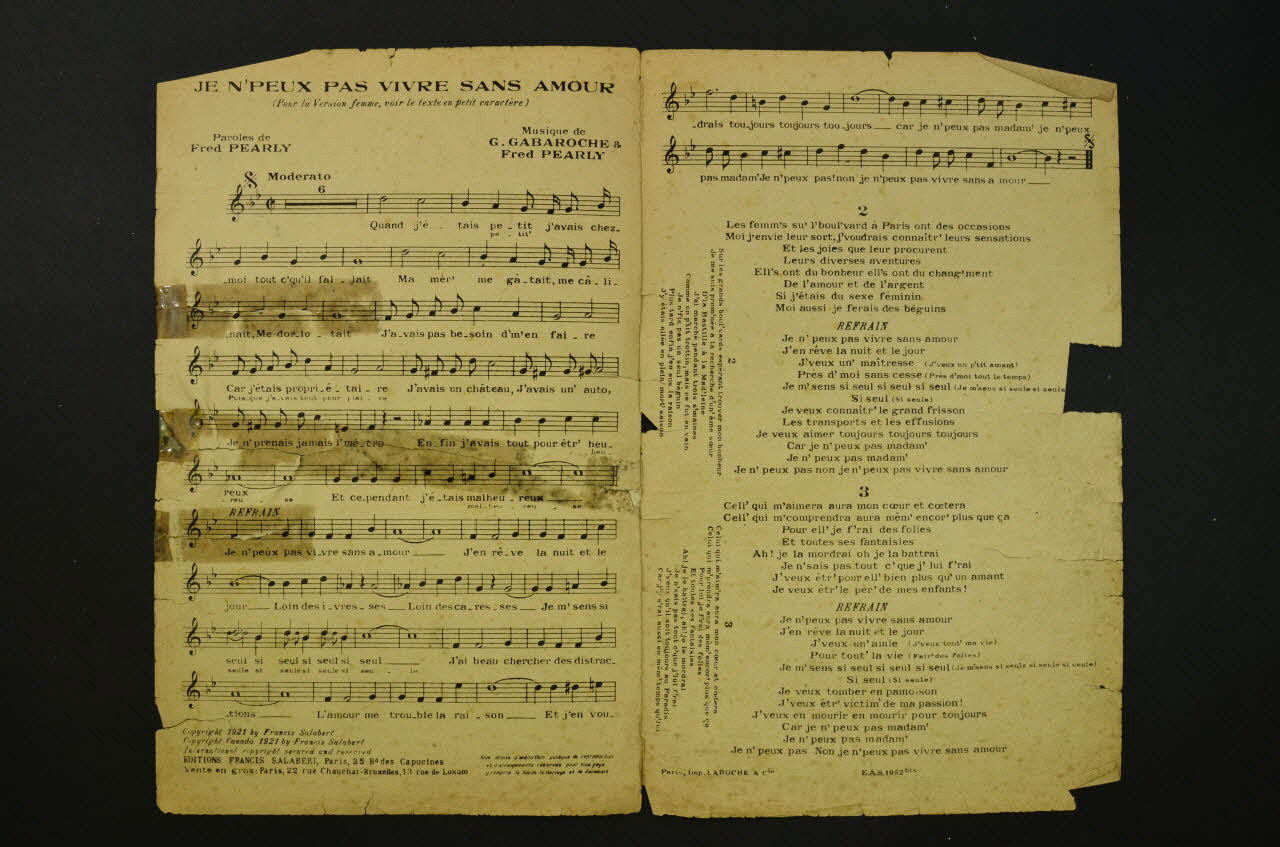 JE N'PEUX PAS VIVRE SANS AMOUR
(Pour la Version femme, voir le texte en petit caractère)
Paroles de
Fred PEARLY
Musique de
G. GABAROCHE &
Fred PEARLY
Moderato
6
Quand j'é - tais pe - tit j'avais chez_
pe - tit'
_moi tout c'qu'il fal - lait Ma mèr' me gâ - tait, me câ - li -
nait, Me dor - lo - tait J'a - vais pas be - soin d'm'en fai - re
Car j'étais propri - é - tai - re J'avais un château, J'avais un' auto,
Puisque j'avais tout pour plai - re
Je n'prenais jamais l'mé - tro En - fin j'avais tout pour êtr' heu -
heu
reux Et ce - pendant j'é - tais malheu - reux
reu - se mal - heu - reu - se
REFRAIN
Je n'peux pas vi - vre sans a - mour J'en rê - ve la nuit et le
jour Loin des i - vres - ses Loin des ca - res - ses Je m' sens si
seul si seul si seul si seul J'ai beau chercher des distrac -
seule si seule si seule si le
_tions L'amour me trou - ble la rai - son Et j'en vou -
Copyright 1921 by Francis Salabert
Copyright Canada 1921 by Francis Salabert
International copyright secured and reserved
EDITIONS FRANCIS SALABERT, Paris, 35 Bd des Capucines
Vente en gros: Paris, 22 rue Chauchat - Bruxelles, 13 rue de Loxum
Tous droits d'exécution publique de reproduction
et d'arrangements réservés pour tous pays
y compris la Suède la Norvège et le Danemark
_drais toujours toujours tou - jours car je n'peux pas madam' je n'peux
pas madam' Je n'peux pas! non je n'peux pas vivre sans a mour
2
Les femm's su' l'boul'vard à Paris ont des occasions
Moi j'envie leur sort, j'voudrais connaîtr' leurs sensations
Et les joies que leur procurent
Leurs diverses aventures
Ell's ont du bonheur ell's ont du chang'ment
De l'amour et de l'argent
Si j'étais du sexe féminin
Moi aussi je ferais des béguins
REFRAIN
Je n' peux pas vivre sans amour
J'en rêve la nuit et le jour
J'veux un' maîtresse (J'veux un p'tit amant)
Près d' moi sans cesse (Près d'moi tout le temps)
Je m' sens si seul si seul si seul (Je m'sens si seule si seule
Si seul (Si seule)
Je veux connaîtr' le grand frisson
Les transports et les effusions
Je veux aimer toujours toujours toujours
Car je n' peux pas madam'
Je n' peux pas madam'
Je n' peux pas non je n'peux pas vivre sans amour
2
Sur les grands boul'vards espérant trouver mon bonheur
Je me suis prom'née à la recherche d'un' âme sœur
D'la Bastille à la Mad'leine
J'ai marché pendant trois s'maines
Comme un p'tit trottin, mais ce fut en vain
Je n'fis pas un seul béguin
Plus tard enfin j'en eus la raison
J'y étais allée en plein' mort' saison
3
Cell' qui m'aimera aura mon cœur et cœtera
Cell' qui m'comprendra aura mêm' encor' plus que ça
Pour ell' je f'rai des folies
Et toutes ses fantaisies
Ah! je la mordrai oh je la battrai
Je n'sais pas tout c'que j' lui f'rai
J'veux êtr' pour ell' bien plus qu'un amant
Je veux êtr' le pèr' de mes enfants!
REFRAIN
Je n'peux pas vivre sans amour
J'en rêve la nuit et le jour
J'veux un' amie (J'veux tout' ma vie)
Pour tout' la vie (Fair' des folies)
Je m' sens si seul si seul si seul (Je m'sens si seule si seule si seule)
Si seul (Si seule)
Je veux tomber en pamoison
J'veux êtr' victim' de ma passion!
J'veux en mourir en mourir pour toujours
Car je n' peux pas madam'
Je n' peux pas madam'
Je n' peux pas Non je n'peux pas vivre sans amour
3
Celui qui m'aim'ra aura mon cœur et cœtera
Celui qui m'prendra aura mêm' encor' plus que ça
Pour lui je f'rai des folies
Et toutes ses fantaisies
Ah! je le battrai, ah! je le mordrai
Je n'sais pas tout c'que j'lui f'rai
J'veux qu'il soit toujours au Paradis
Car j'y s'rai aussi en mêm' temps qu'lui
Paris, Imp. LAROCHE & Cie
E.A.S. 1952 bis